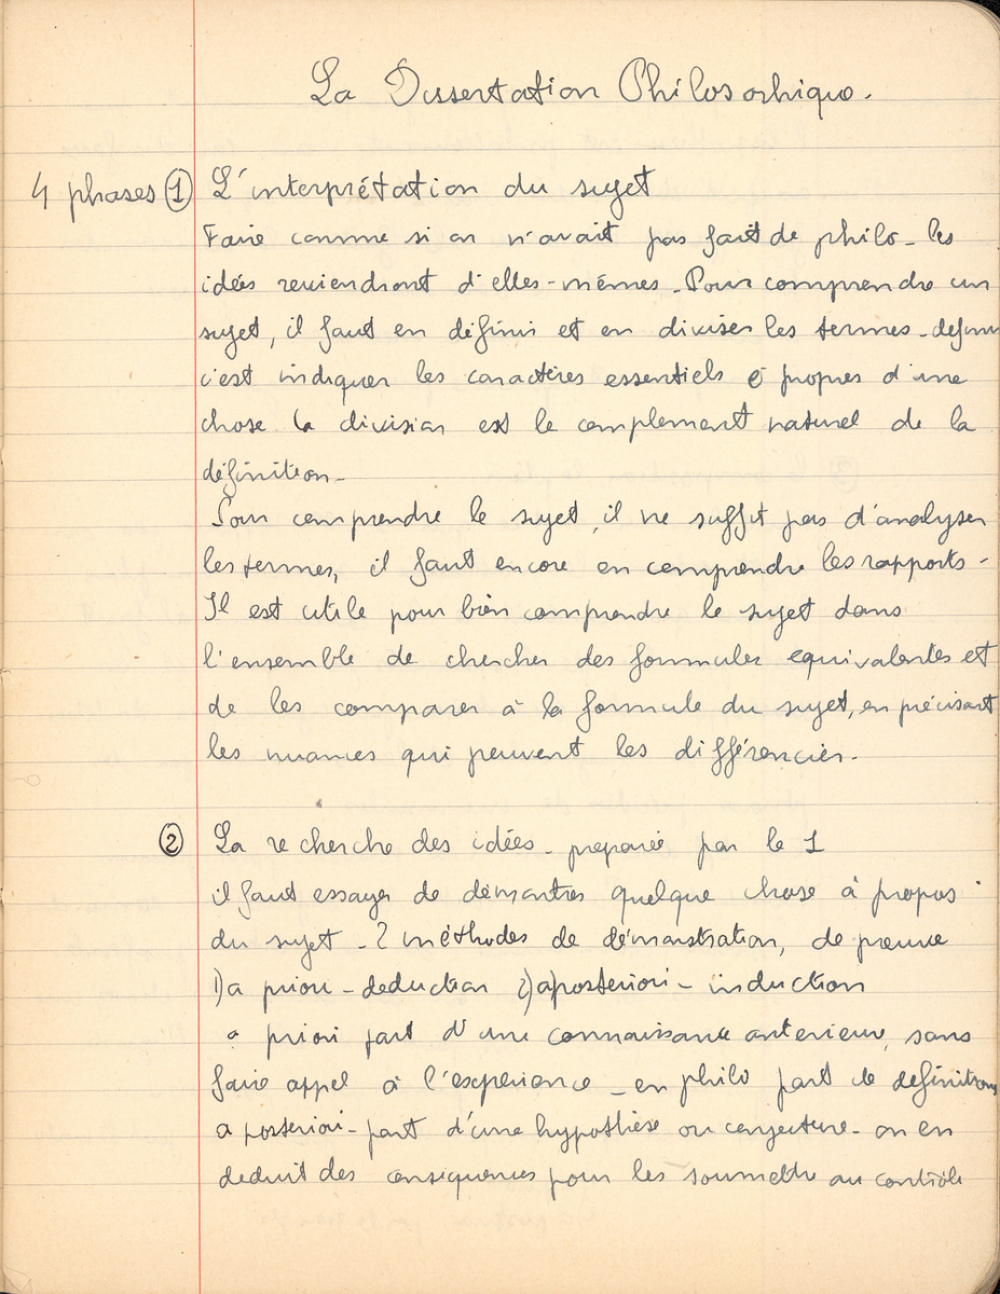 La Dissertation Philosophique.
4 phases ① L'interprétation du sujet
Faire comme si on n'avait pas fait de philo - les
idées reviendront d'elles-mêmes - Pour comprendre un
sujet, il faut en définir et en diviser les termes - definir
c'est indiquer les caractères essentiels et propres d'une
chose la division est le complement naturel de la
définition -
Pour comprendre le sujet, il ne suffit pas d'analyser
les termes, il faut encore en comprendre les rapports -
Il est utile pour bien comprendre le sujet dans
l'ensemble de chercher des formules equivalentes et
de les comparer à la formule du sujet, en précisant
les nuances qui peuvent les différencier.
② La recherche des idées - preparée par le 1
il faut essayer de démontrer quelque chose à propos
du sujet - 2 méthodes de démonstration, de preuve
1) a priori - deduction 2) a posteriori - induction
a priori part d'une connaissance anterieure, sans
faire appel à l'experience - en philo part de definitions
a posteriori - part d'une hypothèse ou conjecture - on en
deduit des consequences pour les soumettre au contrôle